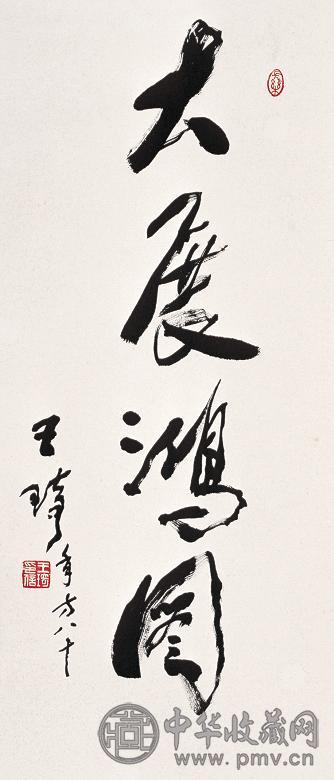 大展鴻圖
王琦年方八十
王琦
中华收藏网
www.pmv.cn